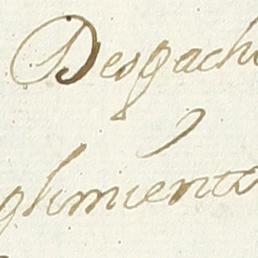 Despacho
glimiento